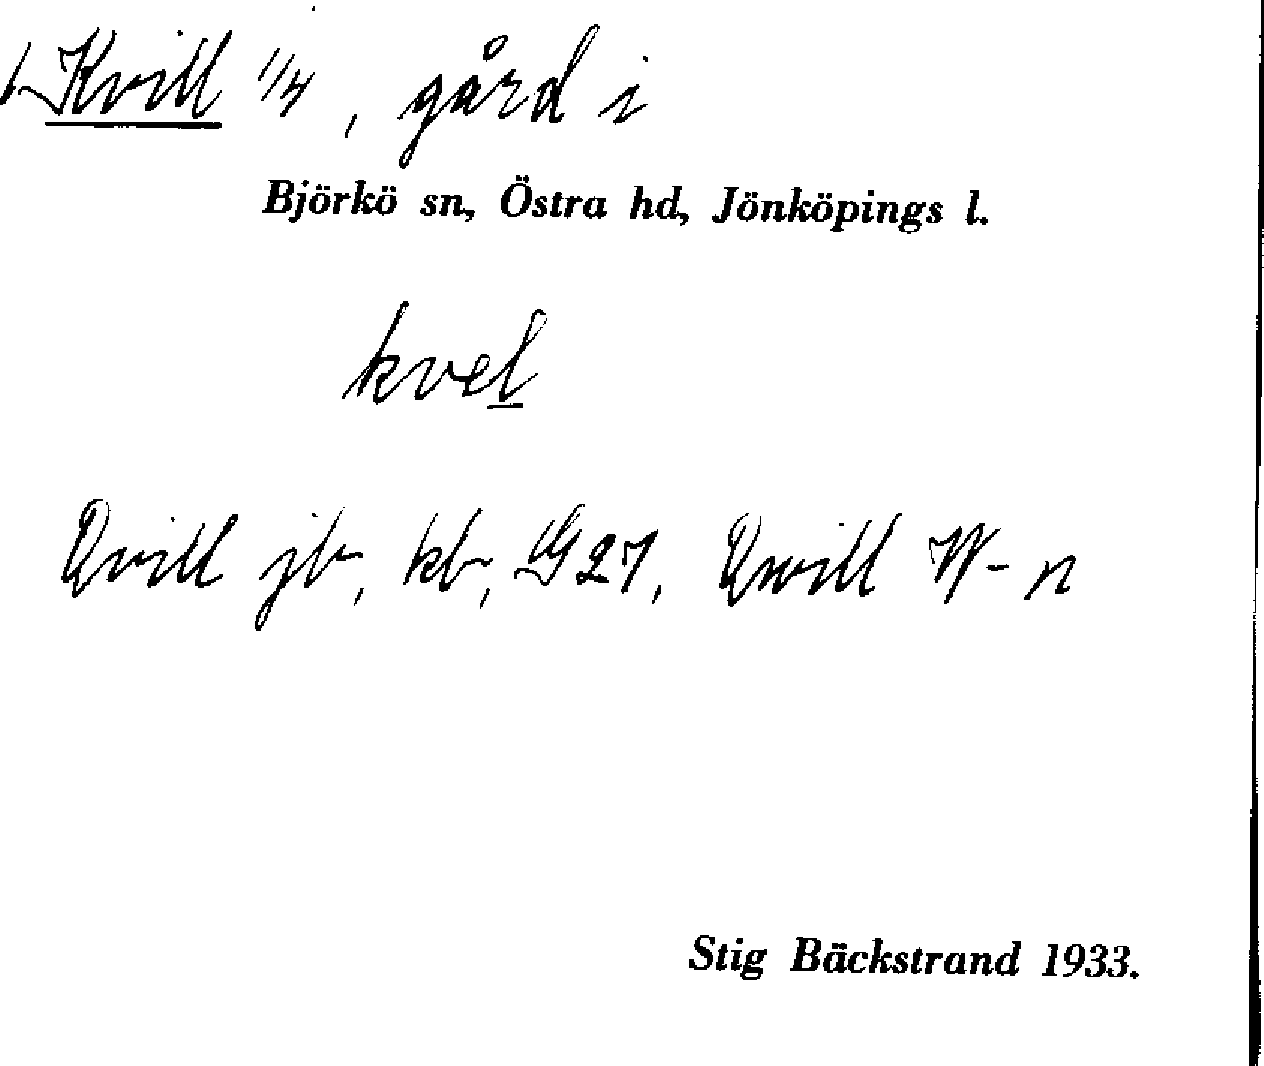 Kvill 1/4, gård i
Björkö sn, Östra hd, Jönköpings l.
kvel
Qvill jb, kb, G27, Qwill W-n
Stig Bäckstrand 1933.